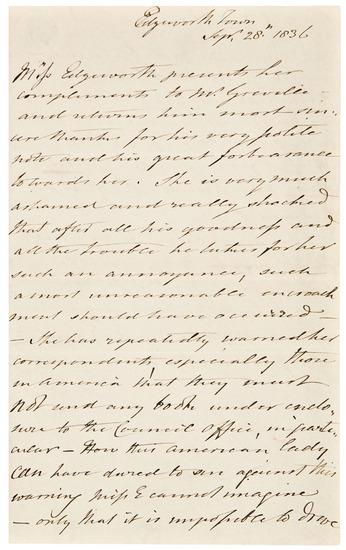 Edgeworth Town
Sept. 28th 1836
Miss Edgeworth presents her
compliments to Mr Greville
and returns him most sin-
cere thanks for his very polite
note and his great forbearance
towards her. She is very much
ashamed and really shocked
that after all his goodness and
all the trouble he takes for her
such an annoyance, such
a most unreasonable encroach
ment should have occurred —
— She has repeatedly warned her
correspondents, especially those
in America that they must
not send any book under enclo-
sure to the Council office, in parti-
cular — How this American lady
can have dared to sin against this
warning Miss E cannot imagine
— only that it is impossible to drive